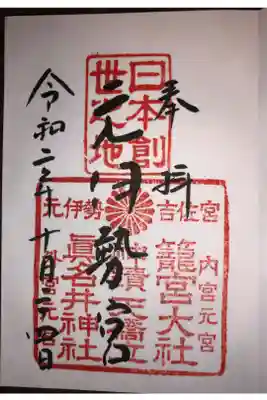 奉拝
日本創
世之地
元伊勢宮
令和二年十月二四日
元伊勢
吉佐宮
内宮元宮
籠宮大社
眞名井神社